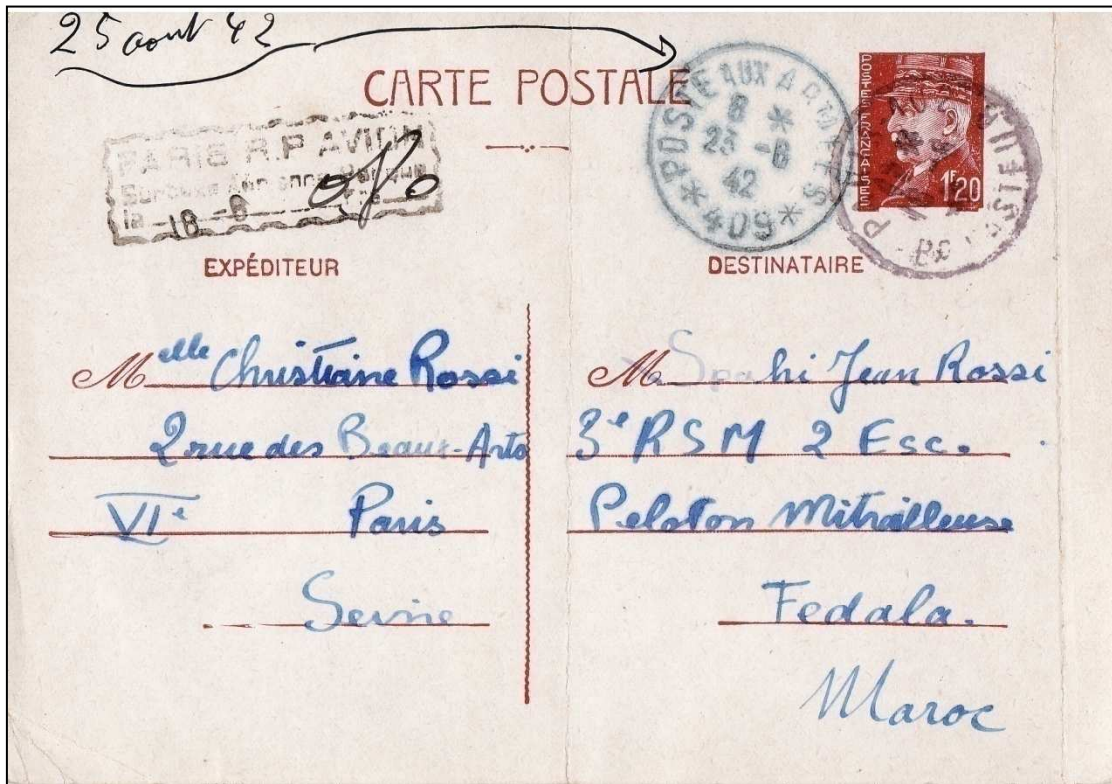 25 aout 42
CARTE POSTALE
PARIS R.P AVION
Surtaxe Aérienne perçue
le -18 -8
POSTE AUX ARMEES
8 *
23 -8
42
* 409 *
POSTE FRANÇAISE
1F20
EXPÉDITEUR
Melle Christiane Rossi
2 rue des Beaux-Arts
VIe Paris
Seine
DESTINATAIRE
M Spahi Jean Rossi
3e RSM 2 Esc.
Peloton Mitrailleuse
Fedala.
Maroc